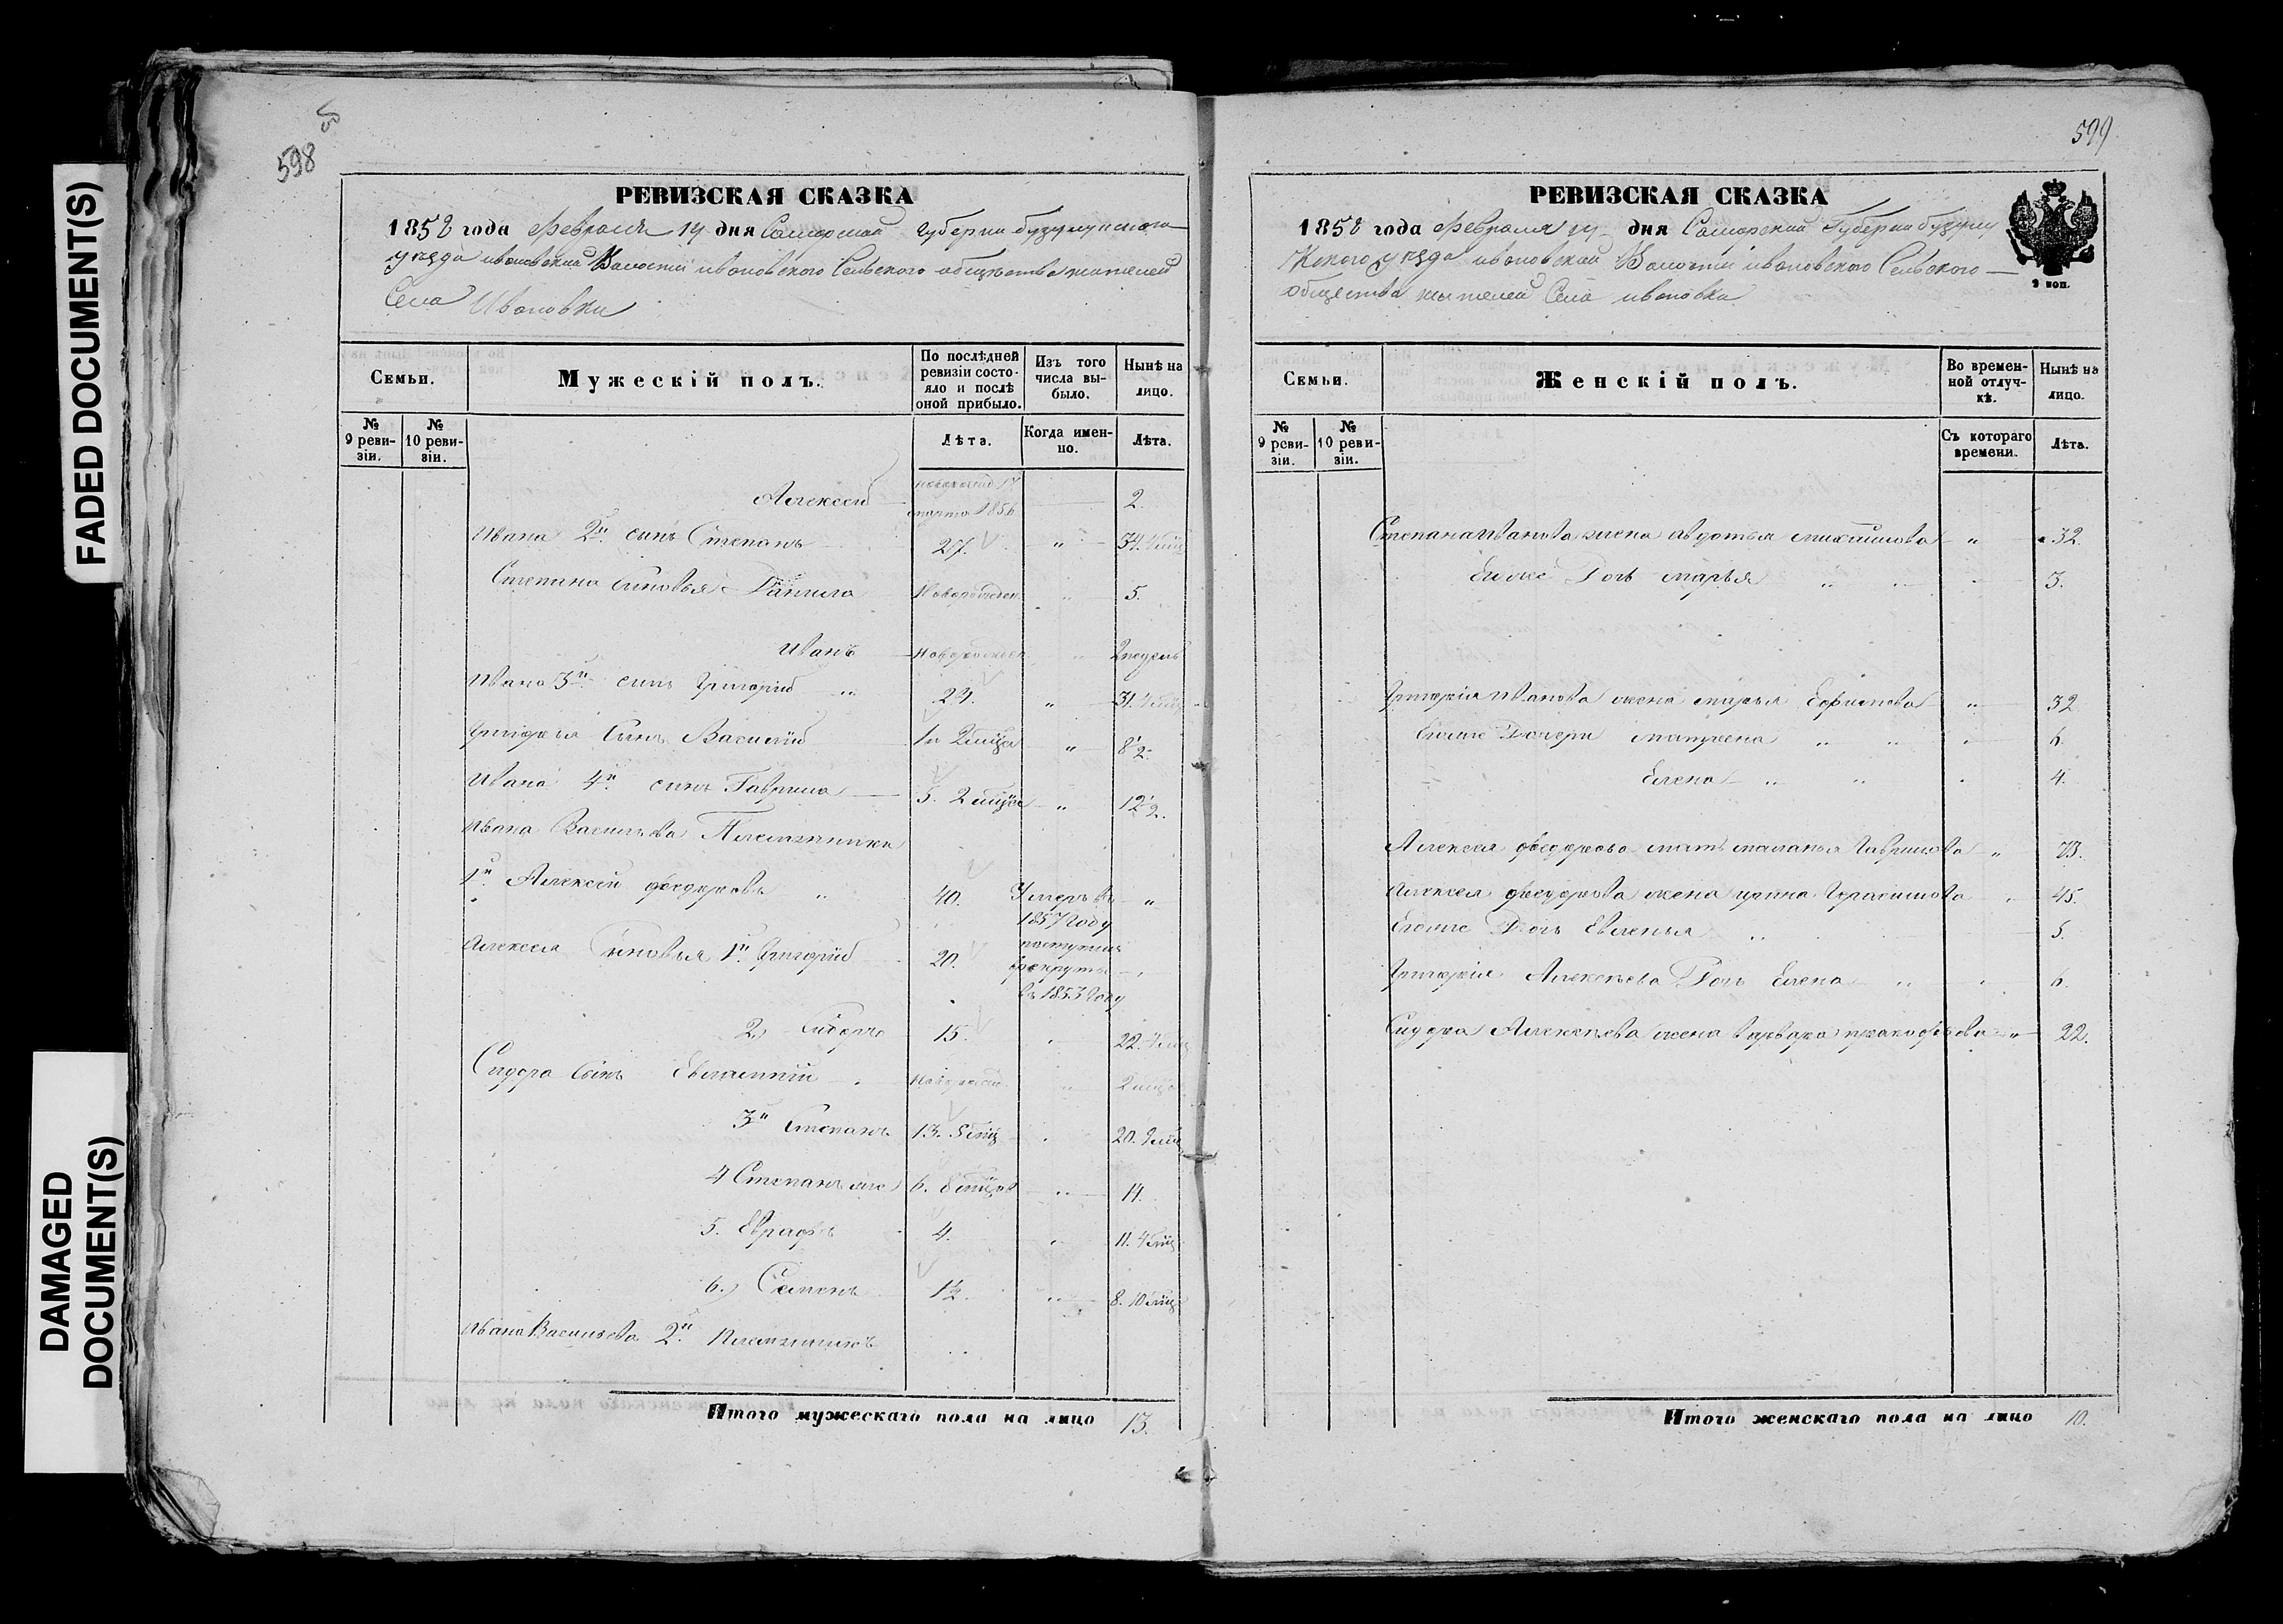 FADED DOCUMENT(S)
DAMAGED
DOCUMENT(S)
598
РЕВИЗСКАЯ СКАЗКА
1858 года Февраля 14 дня Самарской Губерни бузулукского
уезда ивановской Волости ивановского Сельского общества жителей
Села Ивановки
Семьи.
Мужескій полъ.
По послѣдней
ревизіи состо-
яло и послѣ
оной прибыло.
Изъ того
числа вы-
было.
Нынѣ на
лицо.
№
9 реви-
зіи.
№
10 реви-
зіи.
Лѣта.
Когда имен-
но.
Лѣта.
Алексей марта 1856 2
Ивана 2й сынъ Степанъ 27. " 34.
Степана сыновья Данила " 5.
Иванъ " 2 недель
Ивана 3й сынъ Григорий " 24. " 31.
Григорья Сынъ Василий 1 и 2 мѣца " 8 1/2
Ивана 4й сынъ Гаврила 5. 2 мѣца " 12 1/2.
Ивана Васильева Племянники
1й Алексей федоровъ " 40. Умеръ въ "
1857 году
Алексея Сыновья 1й Григорий 20. поступилъ
в рекруты
въ 1853 году
2, Сидоръ 15. 22.
Сидора Сынъ Евлампий " 2 мѣца
3й Степанъ 13. 5 мѣц 20. 9 мѣц
4 Степанъ же 6. 8 мѣцов " 14.
5. Евграфъ 4. 11. 4 мѣц
6, Семенъ 1 1/2. " 8. 10 мѣц
Ивана Васильева 2й Племянникъ
Итого мужескаго пола на лицо 13.
599
РЕВИЗСКАЯ СКАЗКА
1858 года Февраля 14 дня Самарской Губерни бузулу
Кского уезда ивановской Волости ивановского Сельского
общества жителей Села ивановка
2 коп.
Семьи.
Женскій полъ.
Во времен-
ной отлуч-
кѣ.
Нынѣ на
лицо.
№
9 реви-
зіи.
№
10 реви-
зіи.
Съ котораго
времени.
Лѣта.
Степана Иванова жена Авдотья михайлова " 32.
Ево же Дочь марья " 3.
Григорія Иванова жена марья Ефимова " 32
Ево же Дочери матрена " " 6.
Елена " " 4.
Алексея федорова мать маланья Гаврилова " 73.
Алексея федорова жена ирина Герасимова 45.
Ево же Дочь Евгенья " 5.
Григорія Алексеева Дочь Елена " 6.
Сидора Алексеева жена варвара пракофьева " 22.
Итого женскаго пола на лицо 10.